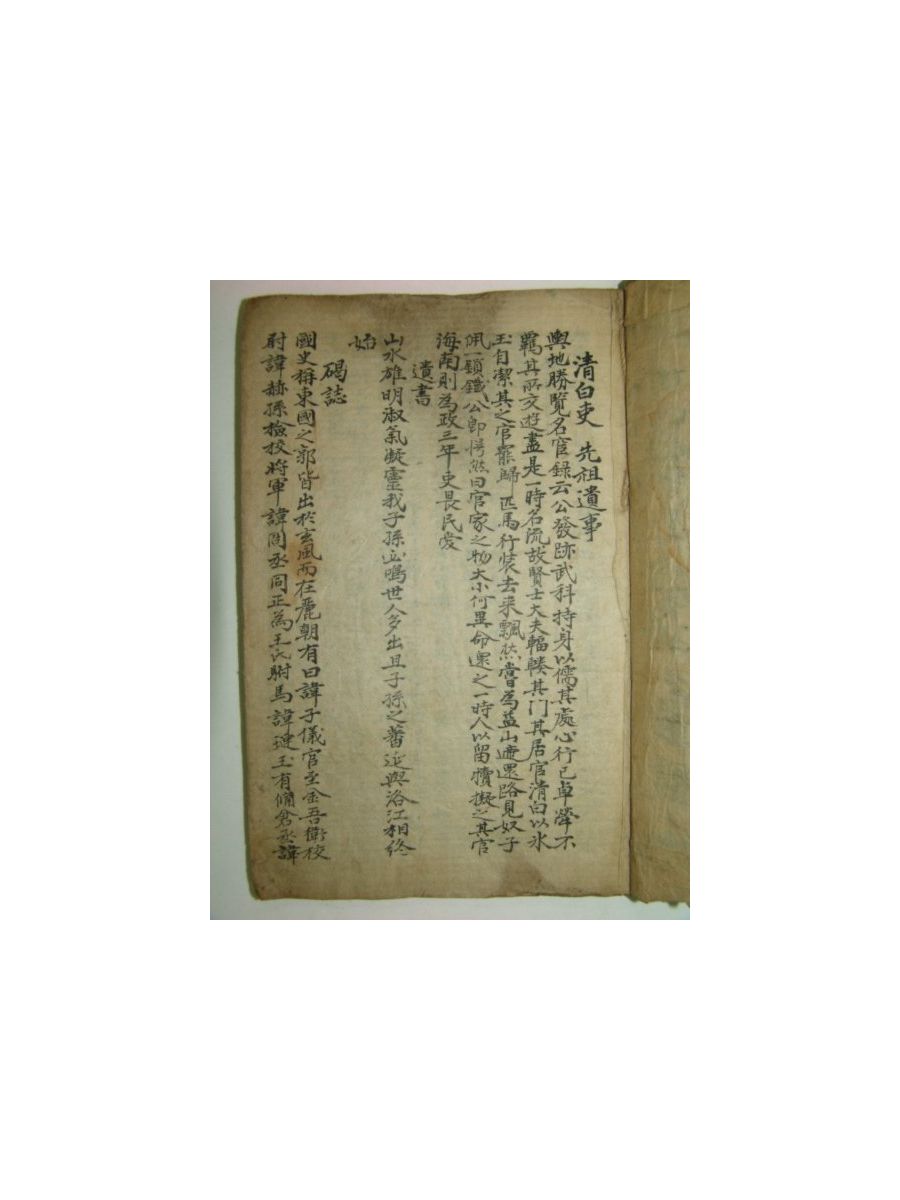 清白吏 先祖遺事
輿地勝覽名宦錄云公發跡武科持身以儒其處心行已卓犖不
羈其所交遊盡是一時名流故賢士大夫輻輳其门其居官清白以氷
玉自潔其之官罷歸一匹馬行裝去来飄然嘗為益山還路見奴子
佩一鎖鐵公即愕然曰官家之物大小何異命還之一時人以留犢擬之其官
海南則為政三年吏畏民愛
遺書
山水雄明淑氣凝靈我子孫並鳴世人多出且子孫之蕃延與洛江相終
始
碣誌
國史稱東國之郭皆出於玄風而在麗朝有曰諱子儀官至金吾衛校
尉諱赫孫檢校將軍諱丞同正為王氏駙馬諱璉玉有備倉丞諱